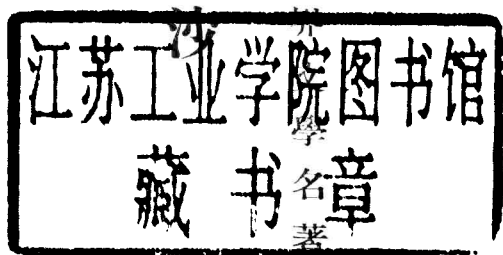 江苏工业学院图书馆
藏书章
沙
學名著